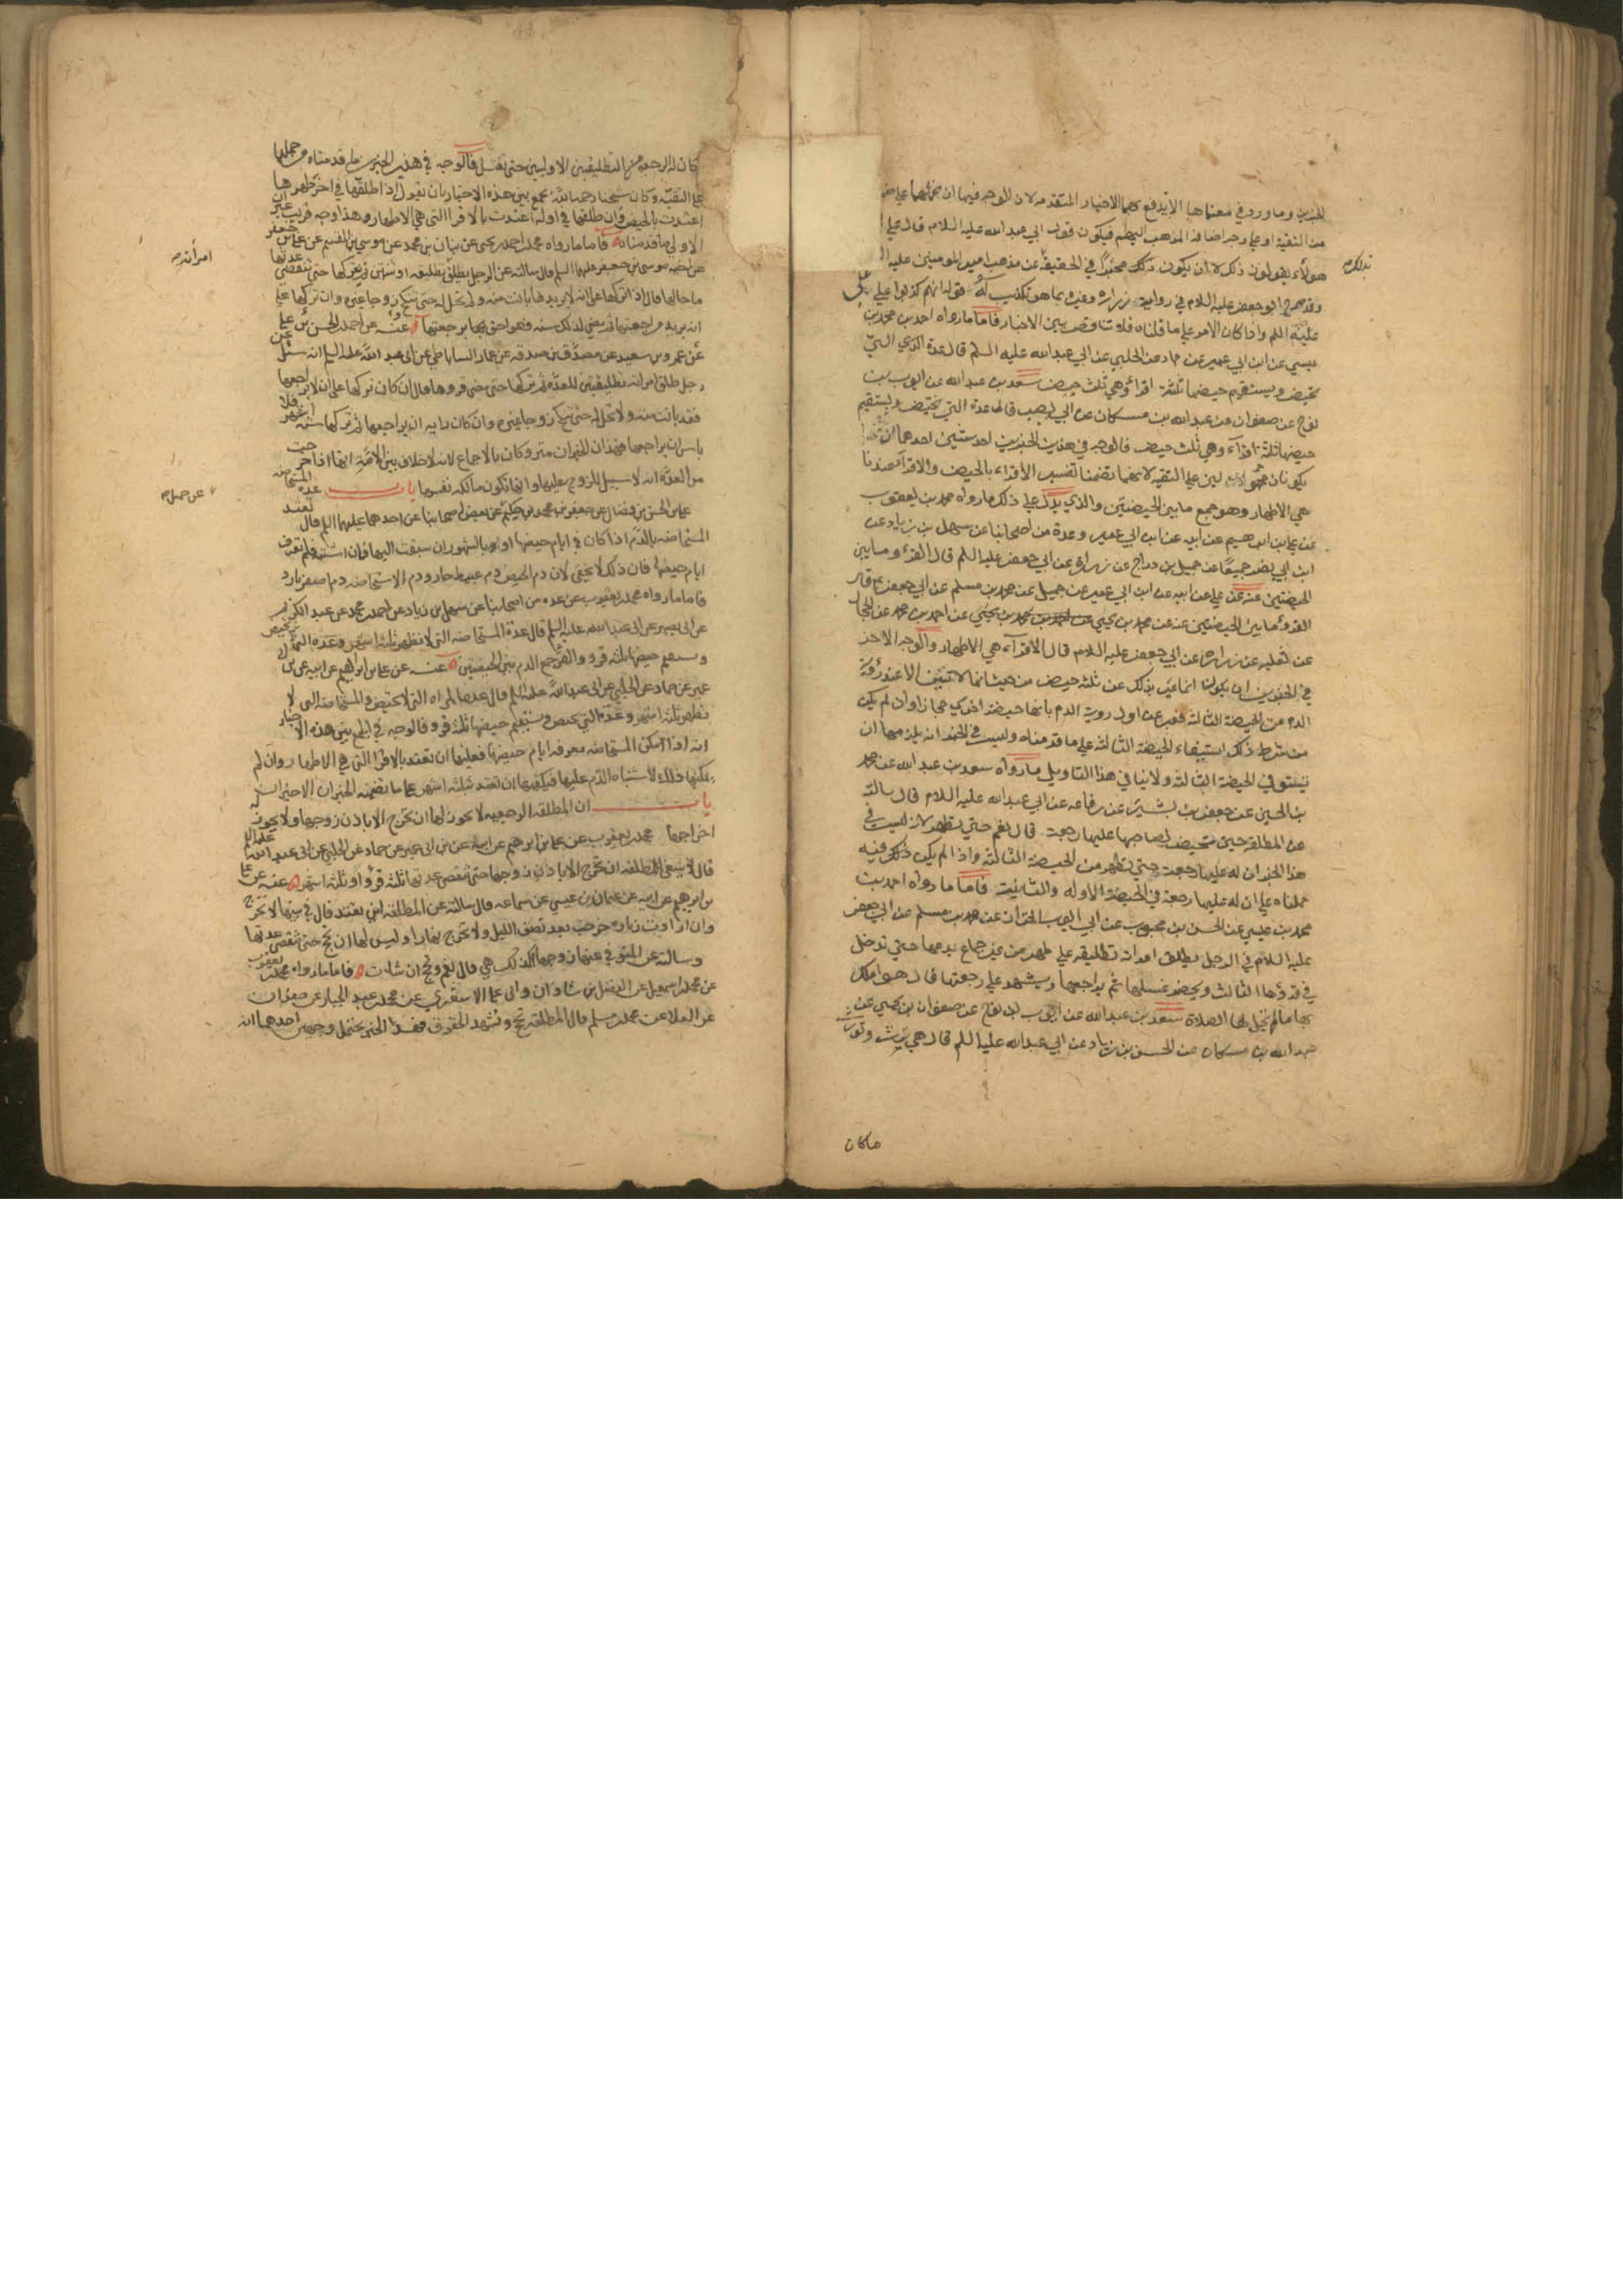 للخبرين وما ورد في معناهما الا يدفع بهما الاخبار المتقدمه لان الوجه فيهما ان نحملهما علي ضر
من التقيه او علي وجه اضافة المذهب اليهم فيكون قول ابي عبد الله عليه السلام قال علي ا
هولاء يقولون ذلك لا ان يكون ذلك مخبراً في الحقيقة عن مذهب امير المومنين عليه ا
بذلك
وقد صرح ابو جعفر عليه السلام في رواية زراره وغيره بما هو تكذيب له قوله انهم كذبوا علي علي
عليه السلم واذا كان الامر علي ما قلناه فلا تناقض بين الاخبار فاما ما رواه احمد بن محمد بن
عيسي عن ابن ابي عمير عن حماد عن الحلبي عن ابي عبد الله عليه السلم قال عدة التي
تحيض ويستقيم حيضها ثلثة اقراء وهي ثلث حيض سعد بن عبد الله عن ايوب بن
نوح عن صفوان عن عبد الله بن مسكان عن ابي بصير قال عدة التي تحيض ويستقيم
حيضها ثلثة اقرآء وهي ثلث حيض فالوجه في هذين الخبرين احد شيئين احدهما ان
يكونا محمولين علي التقيه لانهما تضمنا تفسير الاقراء بالحيض والاقرآء عندنا
هي الاطهار وهو جمع ما بين الحيضتين والذي يدل علي ذلك ما رواه محمد بن يعقوب
عن علي بن ابراهيم عن ابيه عن ابن ابي عمير وعدة من اصحابنا عن سهل بن زياد عن
ابن ابي نصر جميعا عن جميل بن دراج عن زرارة عن ابي جعفر عليه السلم قال القرء ما بين
الحيضتين عنه عن علي عن ابيه عن ابن ابي عمير عن جميل عن محمد بن مسلم عن ابي جعفر ع قال
القرء ما بين الحيضتين عنه عن محمد بن يحيي عن احمد بن محمد عن الحجال
عن ثعلبه عن زراره عن ابي جعفر عليه السلام قال الاقرآء هي الاطهار والوجه الاخر
في الخبرين ان يكونا انما عبر بذلك عن ثلثه حيض من حيث انها لا تبين الا عند رؤية
الدم من الحيضة الثالثة فعبر عن اول روية الدم بانها حيضة اخري مجازا وان لم يكن
من شرط ذلك استيفاء الحيضة الثالثه علي ما قدمناه وليس في الخبر انه يلزمها ان
تستوفي الحيضة الثالثة ولا ينافي هذا التاويل ما رواه سعد بن عبد الله عن محمد
بن الحسين عن جعفر بن بشير عن رفاعه عن ابي عبد الله عليه السلام قال سالته
عن المطلقة حين تحيض لصاحبها عليها رجعة قال نعم حتي تطهر لانه ليس في
هذا الخبر ان له عليها رجعة حتي تطهر من الحيضة الثالثة واذا لم يكن ذلك فيه
حملناه علي ان له عليها رجعة في الحيضة الاوله والثانية فاما ما رواه احمد بن
محمد بن عيسي عن الحسن بن محبوب عن ابي ايوب الخزاز عن محمد بن مسلم عن ابي جعفر
عليه السلام في الرجل يطلق امراته تطليقه علي طهر من غير جماع يدعها حتي تدخل
في قرؤها الثالث ويحضر غسلها ثم يراجعها ويشهد علي رجعتها قال هو املك
بها ما لم تحل لها الصلاة سعد بن عبد الله عن ايوب بن نوح عن صفوان بن يحيي عن
عبد الله بن مسكان عن الحسن بن زياد عن ابي عبد الله عليه السلم قال هي ترث وتورث
ما كان
كان له الرجعه من التطليقتين الاوليين حتى تغتسل فالوجه في هذين الخبرين ما قدمناه من حملها
علي التقيه وكان شيخنا رحمه الله يجمع بين هذه الاخبار بان يقول اذا طلقها في اخر طهرها
اعتدت بالحيض وان طلقها في اوله اعتدت بالاقرا التي هي الاطهار وهذا وجه قريب غير ان
الاولي ما قدمناه فاما ما رواه محمد بن احمد بن يحيى عن بنان بن محمد عن موسي بن القسم عن علي بن جعفر
عن اخيه موسى بن جعفر عليهما السلم قال سالته عن الرجل يطلق تطليقه او اثنتين ثم يتركها حتى تنقضي عدتها
امرأته
ما حالها قال اذا تركها على انه لا يريدها بانت منه ولم تحل له حتى تنكح زوجا غيره وان تركها علي
انه يريد مراجعتها ثم مضي لذلك سنه فهو احق برجعتها وعنه عن احمد بن الحسن بن علي
عن عمرو بن سعيد عن مصدق بن صدقه عن عمار الساباطي عن ابى عبد الله عليه السلم انه سئل عن
رجل طلق امراته تطليقتين للعده ثم تركها حتى مضى قروها قال ان كان تركها على ان لا يراجعها
فقد بانت منه ولا تحل له حتى تنكح زوجا غيره وان كان رايه ان يراجعها ثم تركها سنه اشهر فلا
باس ان يراجعها فهذان الخبران متروكان بالاجماع لانه لا خلاف بين الامة انها اذا خرجت
من العده انه لا سبيل للزوج عليها وانها تكون مالكه نفسها باب عده المستحاضه
علي بن الحسن بن فضال عن جعفر بن محمد بن حكيم عن جميل عن بعض اصحابنا عن احدهما عليهما السلم قال تعتد
عن جميل
المستحاضه بالدم اذا كان في ايام حيضها او بالشهور ان سبقت اليها فان اشتبه فلم تعرف
ايام حيضها فان ذلك لا يخفى لان دم الحيض دم عبيط حار ودم الاستحاضه دم اصفر بارد
فاما ما رواه محمد بن يعقوب عن عده من اصحابنا عن سهل بن زياد عن احمد بن محمد عن عبد الكريم
عن ابى بصير عن ابى عبد الله عليه السلم قال عدة المستحاضه التى لا تطهر ثلثه اشهر وعدة التى تحيض
ويستقيم حيضها ثلثه قروء والقرء جمع الدم بين الحيضتين عنه عن علي بن ابراهيم عن ابيه عن ابن ابي
عمير عن حماد عن الحلبي عن ابى عبد الله عليه السلم قال عدة المراه التى لا تحيض والمستحاضه التى لا
تطهر ثلثه اشهر وعدة التي تحيض ويستقيم حيضها ثلثه قروء فالوجه في الجمع بين هذه الاخبار
انه اذا امكن المستحاضه معرفه ايام حيضها فعليها ان تعتد بالاقرا التي هي الاطهار وان لم
يمكنها ذلك لاشتباه الدم عليها فيكفيها ان تعتد بثلثه اشهر على ما تضمنه الخبران الاخيران
باب ان المطلقه الرجعيه لا يجوز لها ان تخرج الا باذن زوجها ولا يجوز له
اخراجها محمد بن يعقوب عن علي بن ابرهيم عن ابيه عن ابن ابى عمير عن حماد عن الحلبي عن ابى عبد الله عليه السلم
قال لا ينبغي للمطلقه ان تخرج الا باذن زوجها حتى تنقضي عدتها ثلثه قرؤ او ثلثة اشهر عنه عن علي
بن ابرهيم عن ابيه عن عثمان بن عيسي عن سماعه قال سالته عن المطلقه اين تعتد قال في بيتها لا تخرج
وان ارادت زياره خرجت بعد نصف الليل ولا تخرج نهارا وليس لها ان تحج حتى تنقضي عدتها
وسالته عن المتوفي عنها زوجها اكذلك هي قال نعم وتحج ان شات فاما ما رواه محمد بن يعقوب
عن محمد بن اسمعيل عن الفضل بن شاذان وابى علي الاشعري عن محمد بن عبد الجبار عن صفوان
عن العلا عن محمد بن مسلم قال المطلقه تحج وتشهد الحقوق فهذا الخبر يحتمل وجهين احدهما انه